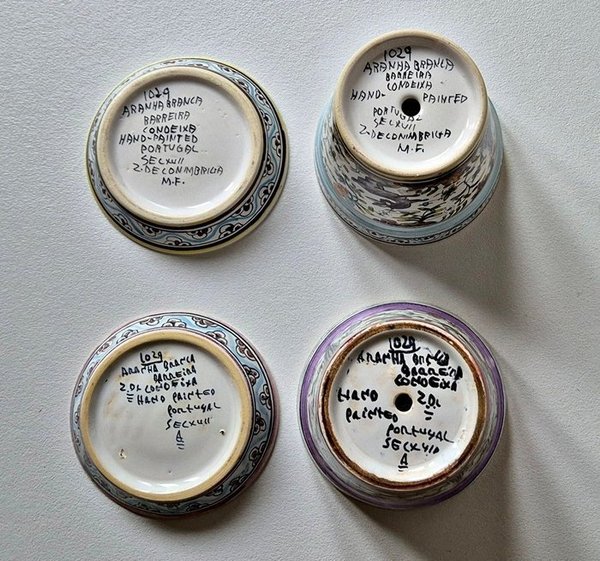 1029
ARANHA BRANCA
BARREIRA
CONDEIXA
HAND-PAINTED
PORTUGAL
SECXVII
Z.DECONIMBRIGA
M.F.
1029
ARANHA BRANCA
BARREIRA
CONDEIXA
HAND- PAINTED
PORTUGAL
SECXVII
Z.DECONIMBRIGA
M.F.
1029
ARANHA BRANCA
BARREIRA
Z.DL CONDEIXA
HAND PAINTED
PORTUGAL
SECXVII
A
1029
ARANHA BRANCA
BARREIRA
CONDEIXA
HAND Z.DL
PAINTED
PORTUGAL
SECXVII
A